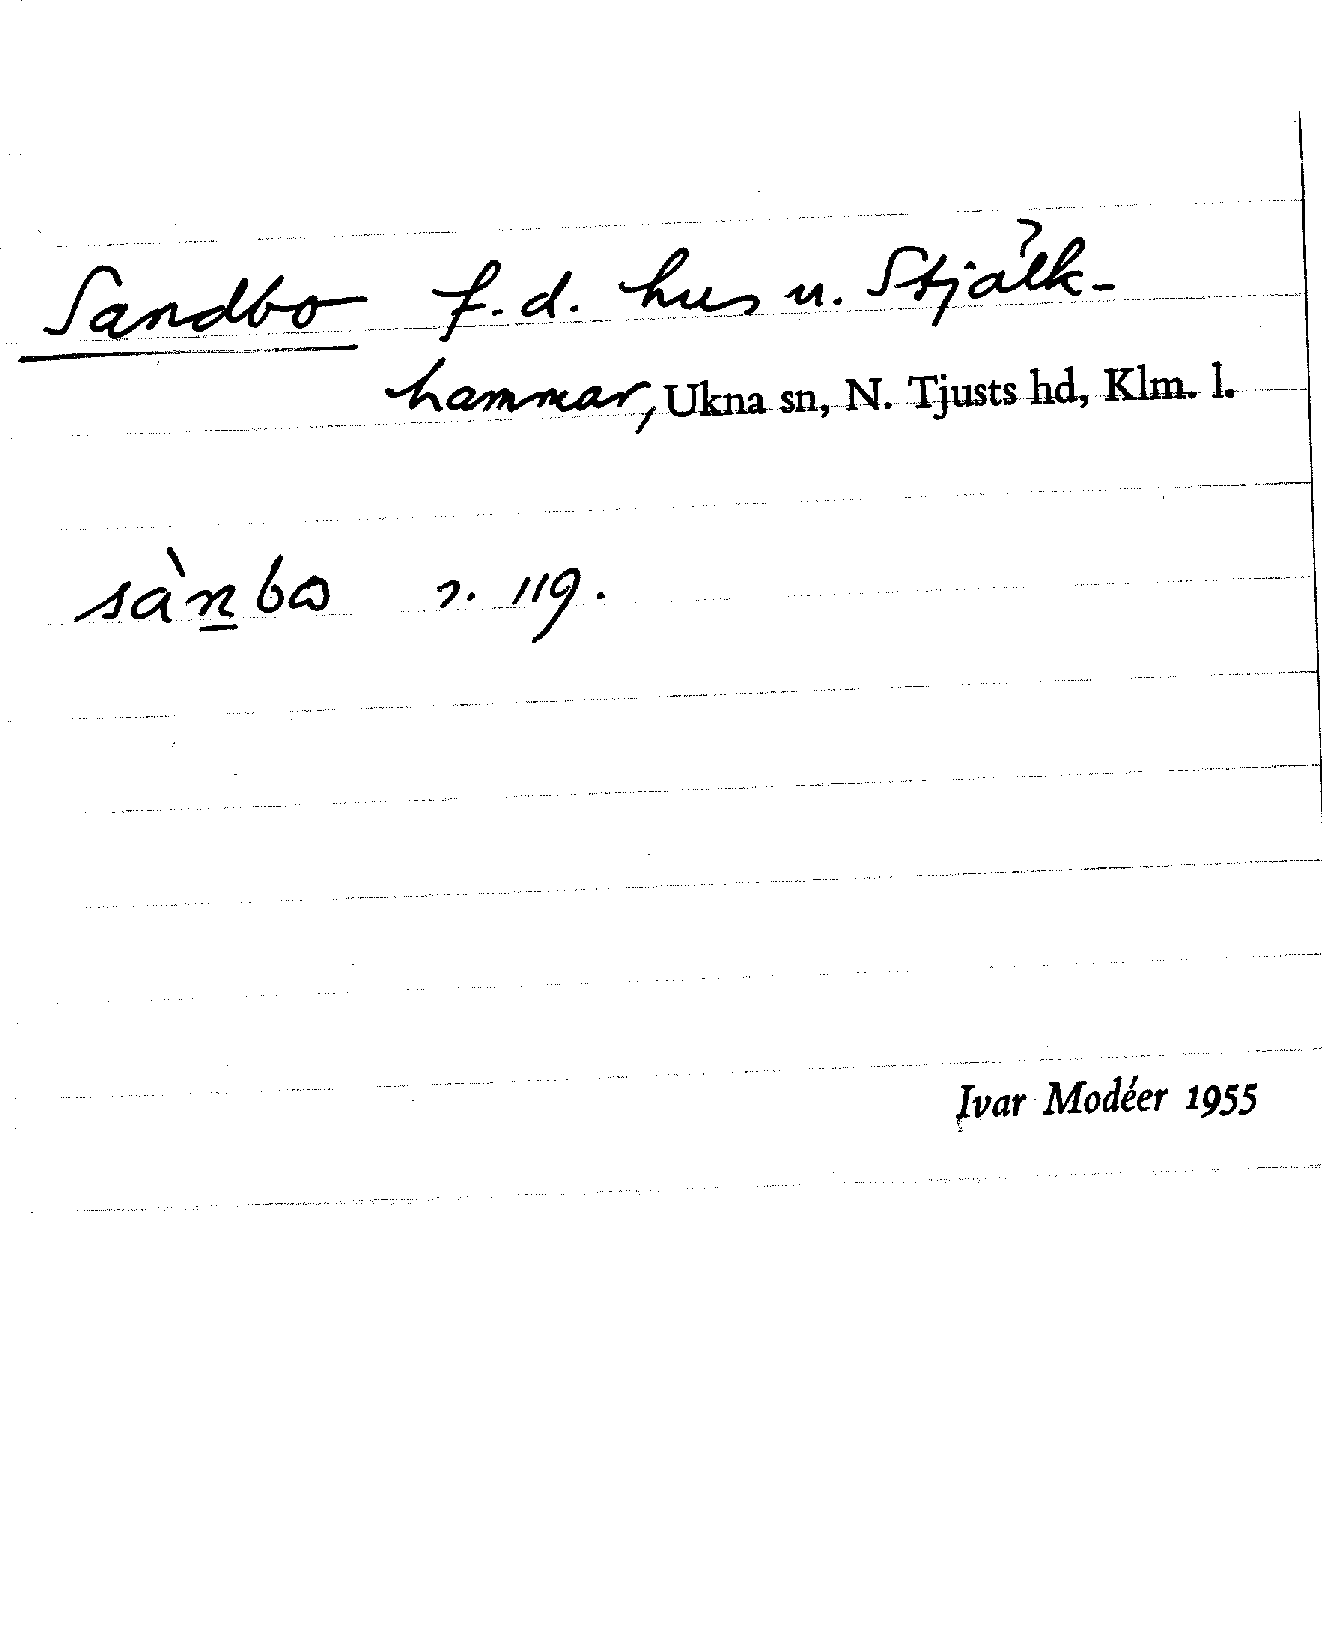 Sandbo f.d. hus u. Stjälk-
hammar, Ukna sn, N. Tjusts hd, Klm. l.
sànbo r. 119.
Ivar Modéer 1955